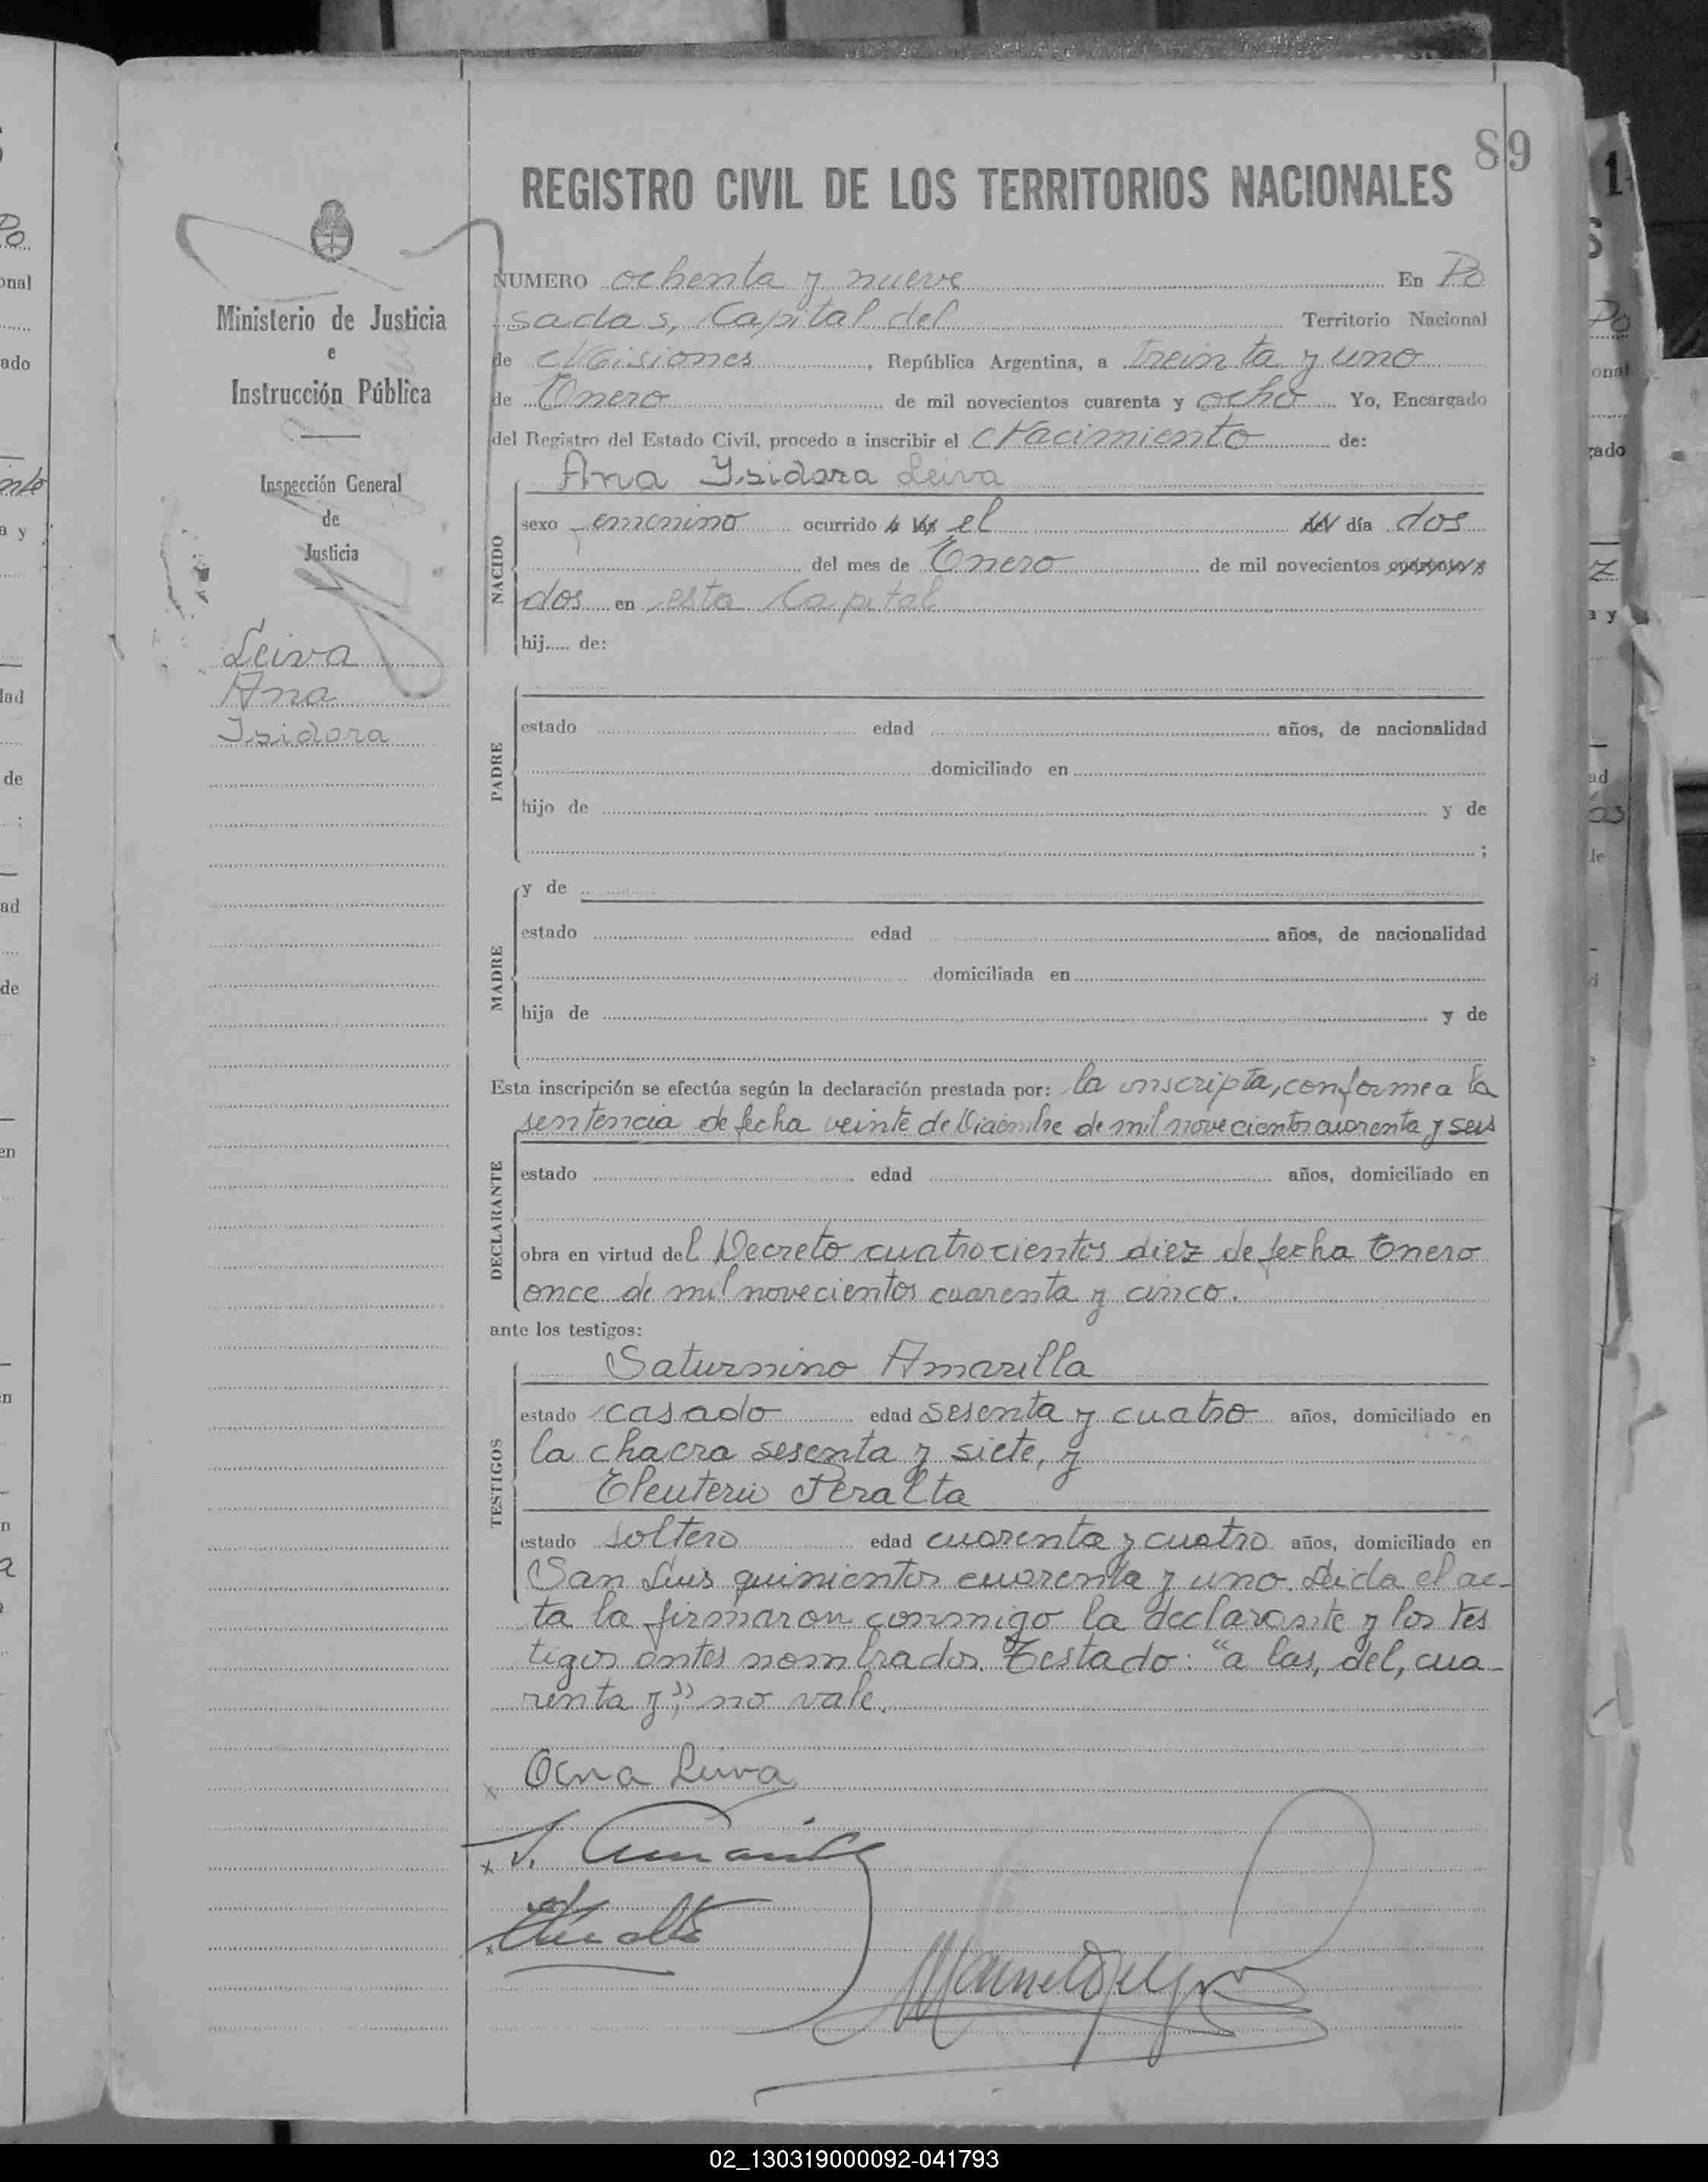 89
REGISTRO CIVIL DE LOS TERRITORIOS NACIONALES
Ministerio de Justicia
e
Instrucción Pública
Inspección General
de
Justicia
Leiva
Ana
Isidora
NUMERO ochenta y nueve En Po
sadas, Capital del Territorio Nacional
de Misiones, República Argentina, a treinta y uno
de Enero de mil novecientos cuarenta y ocho Yo, Encargado
del Registro del Estado Civil, procedo a inscribir el Nacimiento de:
Ana Isidora Leiva
NACIDO
sexo femenino ocurrido a las el del día dos
del mes de Enero de mil novecientos cuarenta y
dos en esta Capital
hij..... de:
PADRE
estado edad años, de nacionalidad
domiciliado en
hijo de y de
;
MADRE
y de
estado edad años, de nacionalidad
domiciliada en
hija de y de
Esta inscripción se efectúa según la declaración prestada por: la inscripta, conforme a la
sentencia de fecha veinte de Diciembre de mil novecientos cuarenta y seis
DECLARANTE
estado edad años, domiciliado en
obra en virtud del Decreto cuatrocientos diez de fecha Enero
once de mil novecientos cuarenta y cinco.
ante los testigos:
Saturnino Amarilla
TESTIGOS
estado casado edad sesenta y cuatro años, domiciliado en
la chacra sesenta y siete, y
Eleuterio Peralta
estado soltero edad cuarenta y cuatro años, domiciliado en
San Luis quinientos cuarenta y uno. Leida el ac-
ta la firmaron conmigo la declarante y los tes
tigos antes nombrados. Testado: "a las, del, cua-
renta y" no vale.
x Ana Leiva
x S. Amarilla
x
02_130319000092-041793